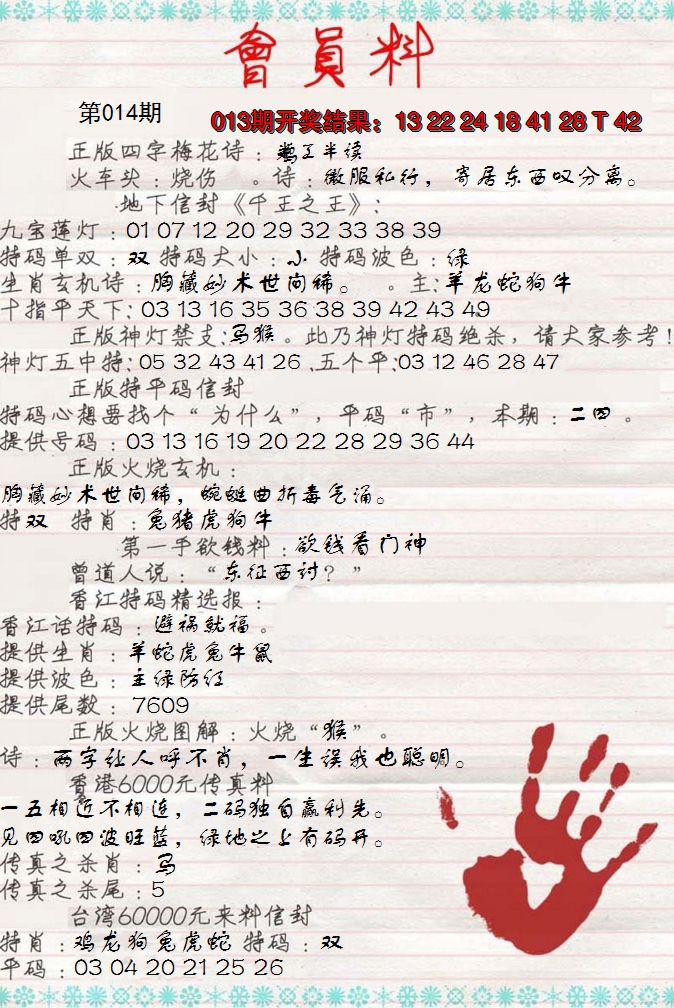 會員料
第014期
013期开奖结果：13 22 24 18 41 28 T 42
正版四字梅花诗：半工半读
火车头：烧伤 。诗：微服私行，寄居东西叹分离。
地下信封《千王之王》：
九宝莲灯：01 07 12 20 29 32 33 38 39
特码单双：双 特码大小：小 特码波色：绿
生肖玄机诗：胸藏妙术世间稀。 。主：羊龙蛇狗牛
十指平天下：03 13 16 35 36 38 39 42 43 49
正版神灯禁支：马猴。此乃神灯特码绝杀，请大家参考！
神灯五中特：05 32 43 41 26 .五个平：03 12 46 28 47
正版特平码信封
特码心想要找个“为什么”，平码“市”，本期：二四。
提供号码：03 13 16 19 20 22 28 29 36 44
正版火烧玄机：
胸藏妙术世间稀，蜿蜒曲折毒气涌。
特双 特肖：兔猪虎狗牛
第一手欲钱料：欲钱看门神
曾道人说：“东征西讨？”
香江特码精选报：
香江话特码：避祸就福。
提供生肖：羊蛇虎兔牛鼠
提供波色：主绿防红
提供尾数：7609
正版火烧图解：火烧“猴”。
诗：两字让人呼不肖，一生误我也聪明。
香港6000元传真料
一五相近不相连，二码独自赢利先。
见四吼四波旺蓝，绿地之上有码开。
传真之杀肖：马
传真之杀尾：5
台湾60000元来料信封
特肖：鸡龙狗兔虎蛇 特码：双
平码：03 04 20 21 25 26